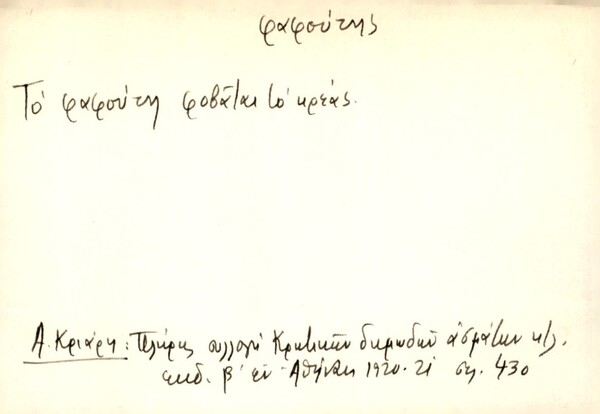 φαφούτης
Τὸ φαφούτη φοβᾶται τὸ κρέας.
Α. Κριάρη: Πλήρης συλλογὴ Κρητικῶν δημωδῶν ἀσμάτων κτλ.
ἐκδ. β' ἐν Ἀθήναις 1920-21 σελ. 430